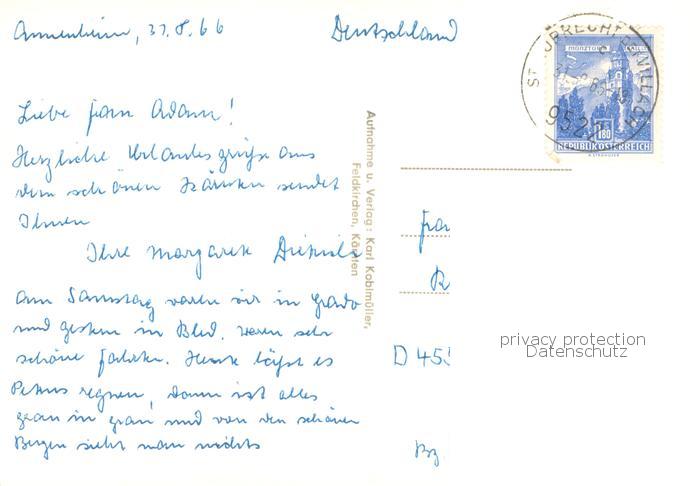 Annenheim, 31.8.66
Deutschland
Liebe Frau Adam!
Herzliche Urlaubsgrüße aus
dem schönen Kärnten sendet
Ihnen
Ihre Margarete
Am Samstag waren wir in Grado
und gestern in Bled. Waren sehr
schöne Fahrten. Heute läßt es
Petrus regnen, dann ist alles
grau in grau und von den schönen
Bergen sieht man nichts
Aufnahme u. Verlag: Karl Koblmüller,
Feldkirchen, Kärnten
ST. RUPRECHT B. VILLACH
9522
MÜNZTURM
1.80
REPUBLIK ÖSTERREICH
D 45
privacy protection
Datenschutz